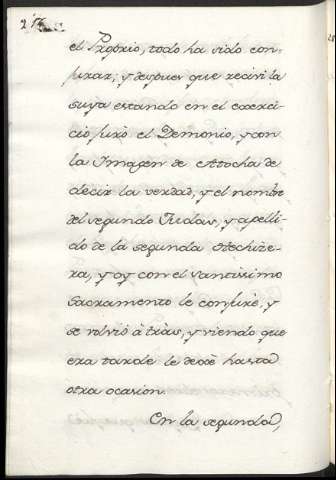 el Proprio, todo ha sido con-
jurar; y despues que recivi la
suya estando en el exerci-
cio juró el Demonio, y con
la Imagen de Atocha de
decir la verdad, y el nombre
del segundo Judas, y apelli-
do de la segunda Hechize-
ra, y oy con el santissimo
Sacramento le conjuré, y
se volvió à trás, y viendo que
era tarde le dexè hasta
otra ocasion.
En la segunda,